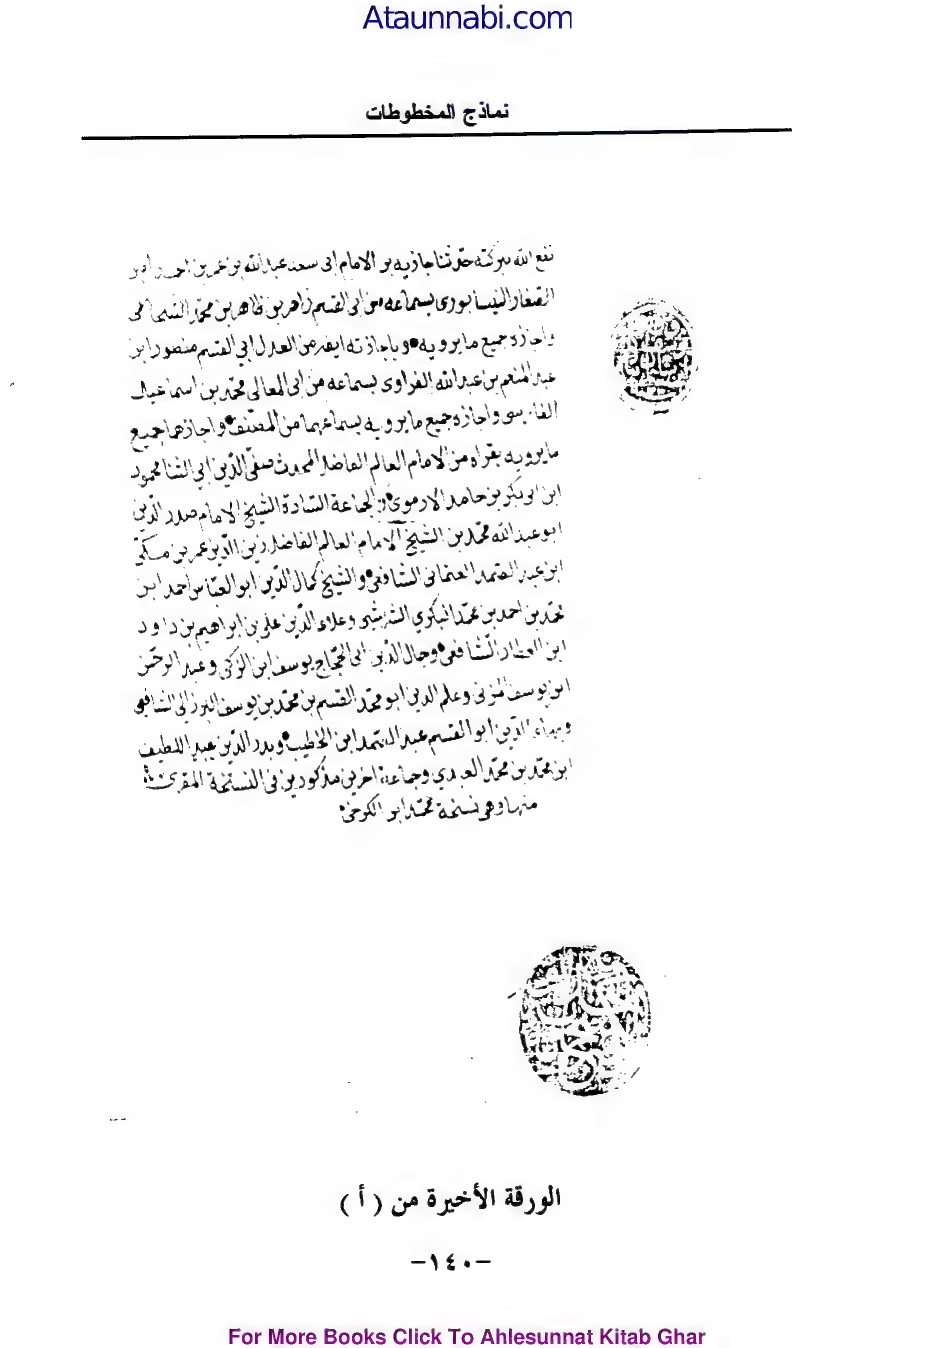 Ataunnabi.com
نماذج المخطوطات
نفع الله ببركته حدثنا باجازته من الامام ابى سعد عبد الله بن عمر بن احمد
الصفار النيسابورى بسماعه من ابى القسم زاهر بن طاهر بن محمد الشحامى
واجازه جميع ما يرويه وباجازته ايضا من العدل ابى القسم منصور ابن
عبد المنعم بن عبد الله الفراوى بسماعه من ابى المعالى محمد بن اسماعيل
الفارسى واجازه جميع ما يرويه بسماعهما من المصنف واجازهما جميع
ما يرويه بقراه من الامام العالم الفاضل المحدث صفى الدين ابى الثنا محمود
ابن ابى بكر بن حامد الارموى الجماعة السادة الشيخ الامام صدر الدين
ابو عبد الله محمد بن الشيخ الامام العالم الفاضل زين الدين عمر بن مكى
ابن عبد الصمد العثمانى الشافعى والشيخ كمال الدين ابو العباس احمد ابن
محمد بن احمد بن محمد البكري الشريشى وعلاء الدين على بن ابراهيم بن داود
ابن العطار الشافعى وجمال الدين ابى الحجاج يوسف ابن الزكى وعبد الرحمن
ابن يوسف المزنى وعلم الدين ابو محمد القسم بن محمد بن يوسف البرزالى الشافعى
وبهاء الدين ابو القسم عبد الصمد ابن الخطيب وبدر الدين عبد اللطيف
ابن محمد بن محمد العبدي وجماعة اخرين مذكورين فى النسخة المقرى
منها وهى نسخة محمد ابن الكرخى
الورقة الأخيرة من ( أ )
-١٤٠-
For More Books Click To Ahlesunnat Kitab Ghar